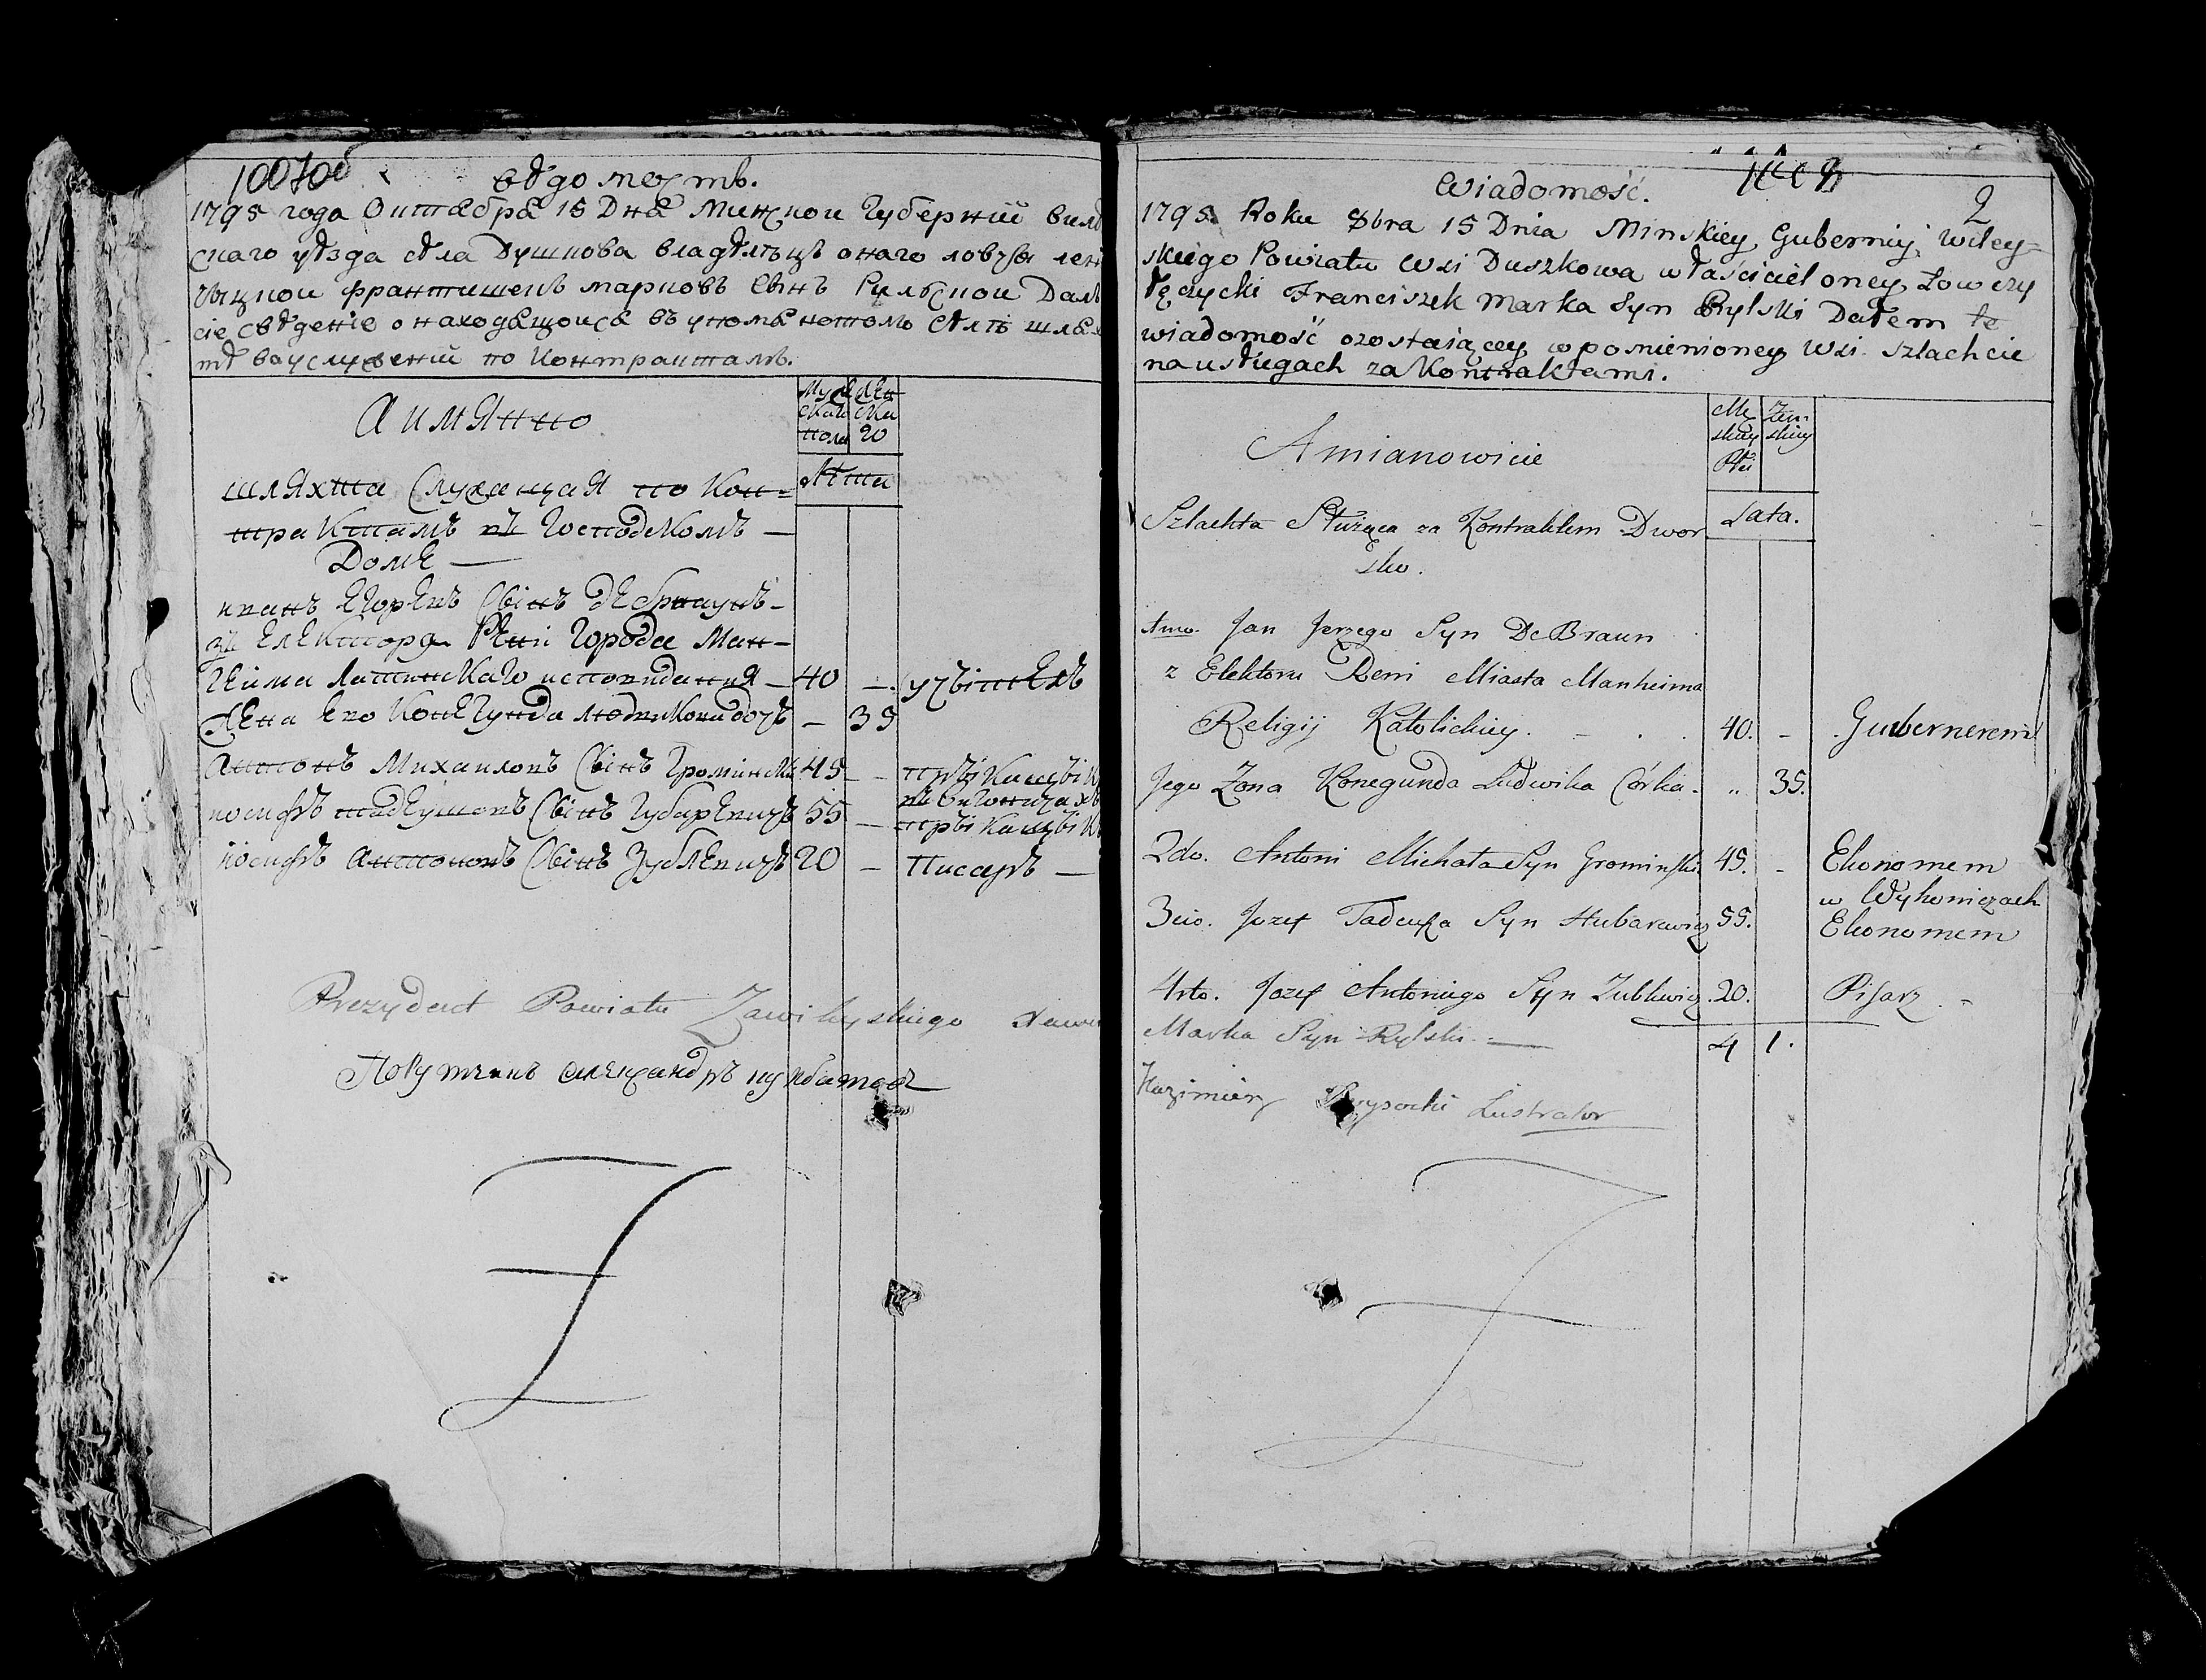 10070
вѣдомость.
1795 года Октабра 15 Дна Минской Губерніи виле
скаго уѣзда сѣла Душкова владѣлецъ онаго ловчый лен
чыцкои францишекъ марковъ Сынъ Рылскои Далъ
сіе свѣденіе о находащоиса въ упоманотомъ сѣлѣ шлах
тѣ во услужении по Контрактамъ.
А имянно
Муже ЖЕн
скаго ска
пола го
лѣта
шляхта Служащая по Кон=
трактамъ въ Господскомъ —
ДомЕ —
иванъ ЕгорЕвъ Сынъ дЕбраунъ -
зъ ЕлЕктора РЕни города Ман-
гЕима латинскаго исповидания - 40 - учытЕль
жЕна Его КонЕгунда людвикова дочъ - 35
Антонъ Михаиловъ Сынъ Громинск 45 - прыкащык
въ выгоничахъ
иосифъ тадЕушовъ Сынъ ГубарЕвичъ 55 - прыкащык
иосифъ Антоновъ Сынъ ЗублЕвичъ 20 - Писаръ -
Prezydent Powiatu Zawileyskiego
Порутчикъ александръ
Wiadomość.
2
1795 Roku 8bra 15 Dnia Minskiey Guberniy Wiley=
skiego Powiatu Wsi Duszkowa właściciel oney Łowczy
Łęczycki Franciszek Marka Syn Rylski Dałem te
wiadomość ozostaiącey wpomienioney Wsi Szlachcie
na usługach za Kontraktami.
Amianowicie
Mę Żen
skiey skiey
Płci
Lata.
Szlachta Służąca za Kontraktem Dwor
sko.
1mo. Jan Jerzego Syn De Braun
z Elektoru Reni Miasta Manheima
Religij Katolickiey. - . . 40. - Gubernerem
Jego Żona Konegunda Ludwika Córka. „ 35.
2do. Antoni Michała Syn Grominski 45. - Ekonomem
w Wyhoniczach
3cio. Jozef Tadeusza Syn Hubarewicz 55. Ekonomem
4rto. Jozef Antoniego Syn Zublewicz. 20. Pisarz. -
Marka Syn Rylski. — 4 1.
Kazimierz Lustrator